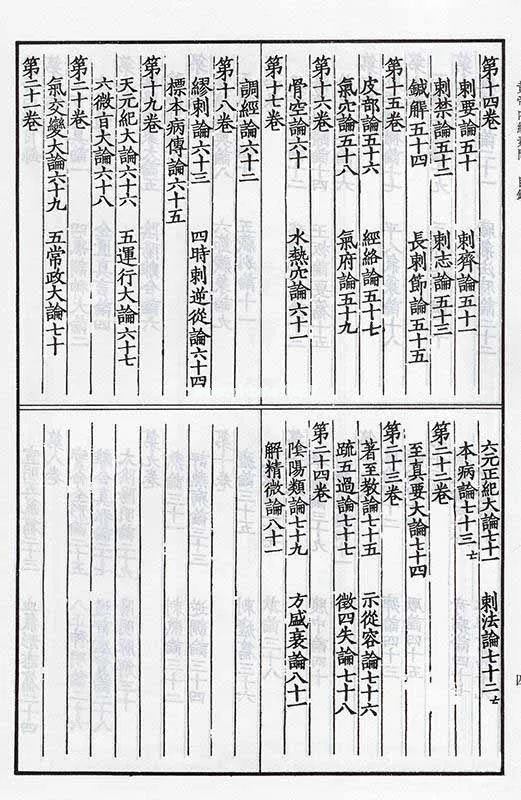 第十四卷
刺要論五十　刺齊論五十一
刺禁論五十二　刺志論五十三
鍼解五十四　長刺節論五十五
第十五卷
皮部論五十六　經絡論五十七
氣穴論五十八　氣府論五十九
第十六卷
骨空論六十　水熱穴論六十一
第十七卷
調經論六十二
第十八卷
繆刺論六十三　四時刺逆從論六十四
標本病傳論六十五
第十九卷
天元紀大論六十六　五運行大論六十七
六微旨大論六十八
第二十卷
氣交變大論六十九　五常政大論七十
第二十一卷
六元正紀大論七十一　刺法論七十二亡
本病論七十三亡
第二十二卷
至真要大論七十四
第二十三卷
著至教論七十五　示從容論七十六
疏五過論七十七　徵四失論七十八
第二十四卷
陰陽類論七十九　方盛衰論八十一
解精微論八十一